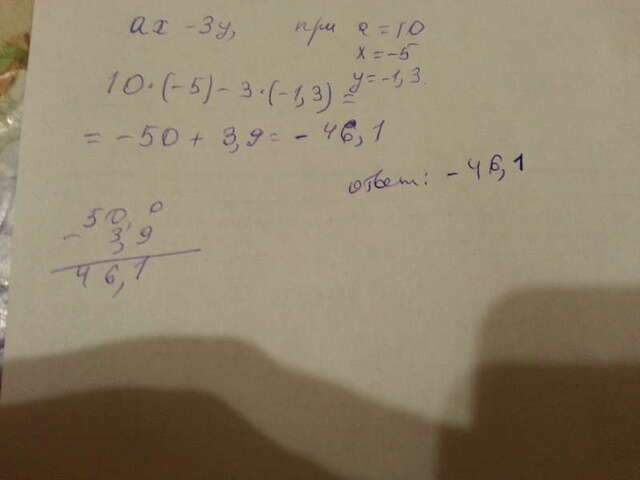 ax - 3y, при a = 10
x = -5
y = -1,3.
10·(-5) - 3·(-1,3) =
= -50 + 3,9 = - 46,1
ответ: - 46,1
50,0
- 3,9
46,1